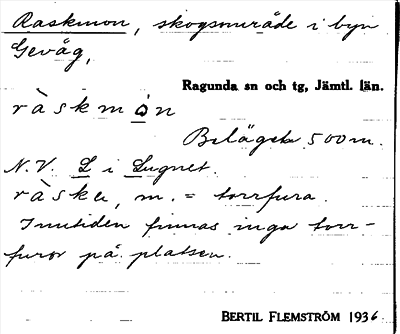 Raskmon, skogsområde i byn
Gevåg,
Ragunda sn och tg, Jämtl. län.
ràskmo̲n
Beläget 500 m.
N.V. L i Lugnet.
ràska, m. = torrfura.
I nutiden finnas inga torr-
furor på platsen.
BERTIL FLEMSTRÖM 1936